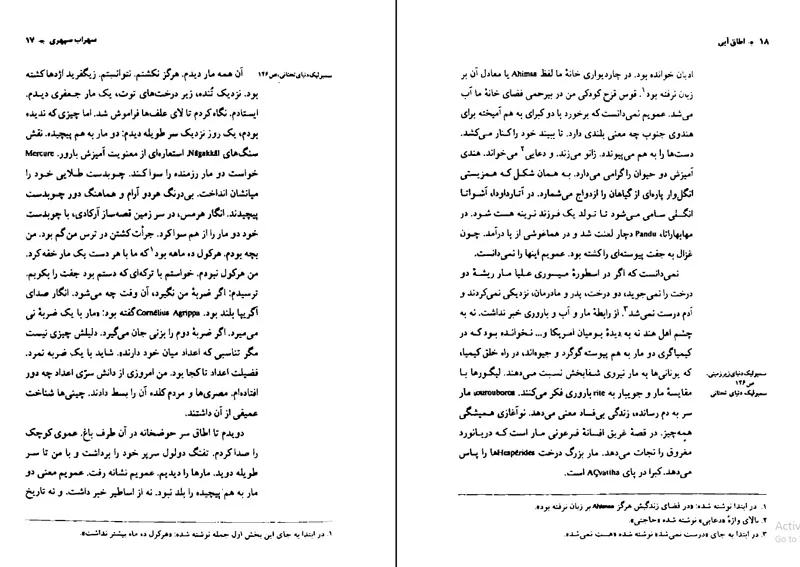 سهراب سپهری ۱۷
آن همه مار دیدم. هرگز نکشتم. نتوانستم. زیگفرید اژدها کشته
سمبولیک دنیای تحتانی، ص ۱۴۶
بود. نزدیک کُنده، زیر درخت‌های توت، یک مار جعفری دیدم.
ایستادم. نگاه کردم تا لای علف‌ها فراموش شد. اما چیزی که ندیده
بودم، یک روز نزدیک سر طویله دیدم: دو مار به هم پیچیده. نقش
سنگ‌های Nâgakkâl، استعاره‌ای از معنویت آمیزش بارور. Mercure
خواست دو مار رزمنده را سوا کند. چوبدست طلایی خود را
میانشان انداخت. بی‌درنگ هر دو آرام و هماهنگ دور چوبدست
پیچیدند. انگار هرمس، در سر زمین قصه‌ساز آرکادی، با چوبدست
خود دو مار را از هم سوا کرد. جرأت کشتن در ترس من گم بود. من
بچه بودم. هرکول ده ماهه بود۱ که ما با هر دست یک مار خفه کرد.
من هرکول نبودم. خواستم با ترکه‌ای که دستم بود جفت را بکوبم.
ترسیدم: اگر ضربهٔ من نگیرد، آن وقت چه می‌شود. انگار صدای
آگریپا بلند بود. Cornélius Agrippa گفته بود: «مار با یک ضربهٔ نی
می‌میرد. اگر ضربهٔ دوم را بزنی جان می‌گیرد. دلیلش چیزی نیست
مگر تناسبی که اعداد میان خود دارند». شاید با یک ضربه نمرد.
فضیلت اعداد تا کجا بود. من امروزی از دانش سرّی اعداد چه دور
افتاده‌ام. مصری‌ها و مردم کلده آن را بسط دادند. چینی‌ها شناخت
عمیقی از آن داشتند.
دویدم تا اطاق سر حوضخانه در آن طرف باغ. عموی کوچک
را صدا کردم. تفنگ دولول سرپر خود را برداشت و با من تا سر
طویله دوید. مارها را دیدیم. عمویم نشانه رفت. عمویم معنی دو
مار به هم پیچیده را بلد نبود. نه از اساطیر خبر داشت. و نه تاریخ
۱. در ابتدا به جای این بخش اول جمله نوشته شده: «هرکول ده ماه بیشتر نداشت».
۱۸ اطاق آبی
ادیان خوانده بود. در چاردیواری خانهٔ ما لفظ Ahimsa یا معادل آن بر
زبان نرفته بود۱. قوس قزح کودکی من در بیرحمی فضای خانهٔ ما آب
می‌شد. عمویم نمی‌دانست که برخورد با دو کبرای به هم آمیخته برای
هندوی جنوب چه معنی بلندی دارد. تا ببیند خود را کنار می‌کشد.
دست‌ها را به هم می‌پیوندد. زانو می‌زند. و دعایی۲ می‌خواند. هندی
آمیزش دو حیوان را گرامی می‌دارد. به همان شکل که همزیستی
انگل‌وار پاره‌ای از گیاهان را ازدواج می‌شمارد. در آتارداودا، آشواتا
انگلی سامی می‌شود تا تولد یک فرزند نرینه هست شود. در
مهابهاراتا، Pandu دچار لعنت شد و در هماغوشی از پا درآمد. چون
غزال به جفت پیوسته‌ای را کشته بود. عمویم اینها را نمی‌دانست.
نمی‌دانست که اگر در اسطورهٔ میسوری علیا مار ریشهٔ دو
درخت را نمی‌جوید، دو درخت، پدر و مادرمان، نزدیکی نمی‌کردند و
آدم درست نمی‌شد۳. از رابطهٔ مار و آب و باروری خبر نداشت. نه به
چشم اهل هند نه به دیدهٔ بومیان امریکا و... نخوانده بود که در
کیمیاگری دو مار به هم پیوسته گوگرد و جیوه‌اند، در راه خلق کیمیا،
سمبولیک دنیای زیرزمینی، ص ۱۳۶
که یونانی‌ها به مار نیروی شفابخش نسبت می‌دهند. لیگورها با
سمبولیک دنیای تحتانی
مقایسهٔ مار و جویبار به rite باروری فکر می‌کنند. ourouboros، مار
سر به دم رسانده، زندگی بی‌فساد معنی می‌دهد. نوآغازی همیشگی
همه‌چیز. در قصهٔ غریق افسانهٔ فرعونی مار است که دریانورد
مغروق را نجات می‌دهد. مار بزرگ درخت Hespérides‌ها را پاس
می‌دهد. کبرا در پای AÇvattha است.
۱. در ابتدا نوشته شده: «در فضای زندگیش هرگز Ahimsa بر زبان نرفته بود».
۲. بالای واژهٔ «دعایی» نوشته شده «حاجتی».
۳. در ابتدا به جای «درست نمی‌شد» نوشته شده «هست نمی‌شد».
Activ
Go to